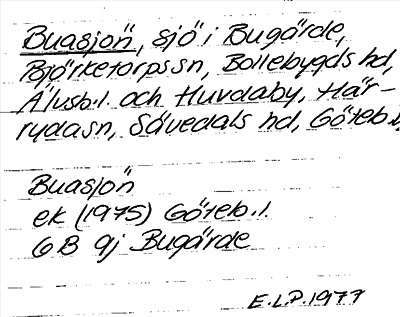 Buasjön, sjö i Bugärde,
Björketorpssn, Bollebygds hd,
Älvsb.l. och Huvdaby, Här-
rydasn, Sävedals hd, Göteb.l.
Buasjön
ek (1975) Göteb.l.
6B 9j Bugärde
E.L.P. 1977